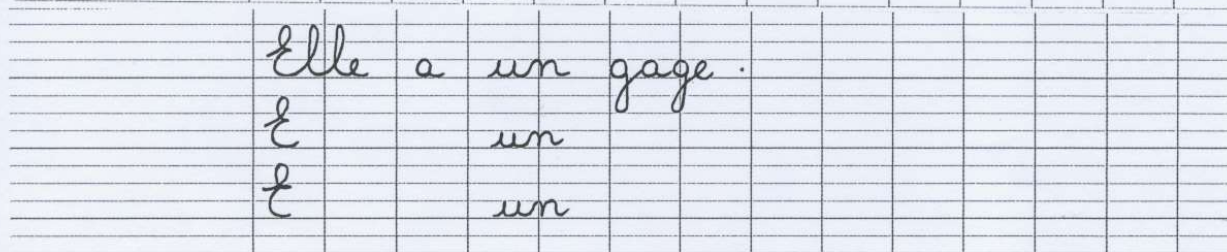 Elle a un gage.
E un
E un